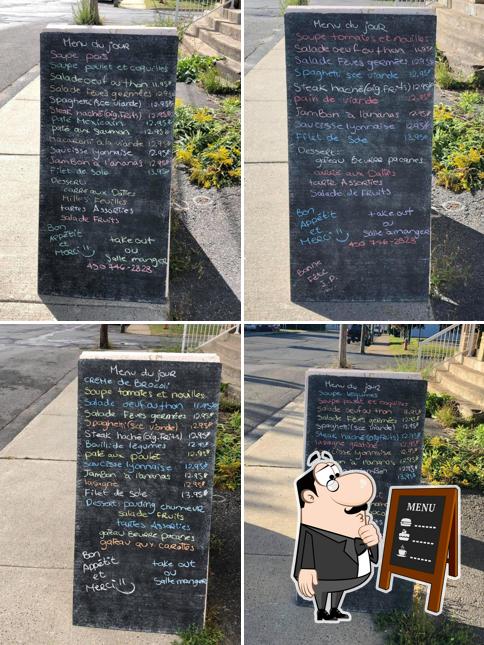 Menu du jour
Soupe pois
Soupe poulet et coquilles
Salade oeuf au thon 11.95$
Salade Feves germées 12.95$
Spaghetti (sce viande) 12.95$
Steak haché (oig. frits) 12.95$
Paté Mexicain 12.95$
paté au saumon 12.95$
Macaroni a la viande 12.95$
Saucisse lyonnaise 12.95$
Jambon à l'ananas 12.95$
Filet de Sole 13.95$
Dessert:
carré aux Dattes
Milles Feuilles
tartes Assorties
salade Fruits
Bon
Appétit
et
Merci!!
take out
ou
Salle manger
450 746-2828
Menu du jour
Soupe tomates et nouilles
Salade oeuf au thon 11.95$
Salade Feves germées 12.95$
Spaghetti sce viande 12.95$
Steak haché (oig. frits) 12.95$
pain de viande 12.95$
Jambon à l'ananas 12.95$
Saucisse lyonnaise 12.95$
Filet de Sole 13.95$
Dessert:
gateau Beurre pacanes
carré aux Dattes
tarte Assorties
Salade de Fruits
Bon
Appétit
et
Merci!!
take out
ou
Salle a manger
450 746-2828
Bonne
Fête
Menu du jour
creme de Brocoli
Soupe tomates et nouilles
Salade oeuf au thon 11.95$
Salade Feves germées 12.95$
Spaghetti (sce viande) 12.95$
Steak haché (oig. frits) 12.95$
Bouilli de légumes 12.95$
paté au poulet 12.95$
Saucisse lyonnaise 12.95$
Jambon à l'ananas 12.95$
lasagne 12.95$
Filet de Sole 13.95$
Dessert: pouding chomeur
salade Fruits
tartes Assorties
gateau Beurre pacanes
gateau aux carottes
Bon
Appétit
et
Merci!!
take out
ou
Salle manger
Menu du jour
Soupe legumes
Soupe poulet et coquilles
Salade oeuf au thon 11.95$
Salade Feves germées 12.95$
Spaghetti (sce viande) 12.95$
Steak haché (oig. frits) 12.95$
lasagne
lyonnaise 12.95$
à l'ananas 12.95$
MENU